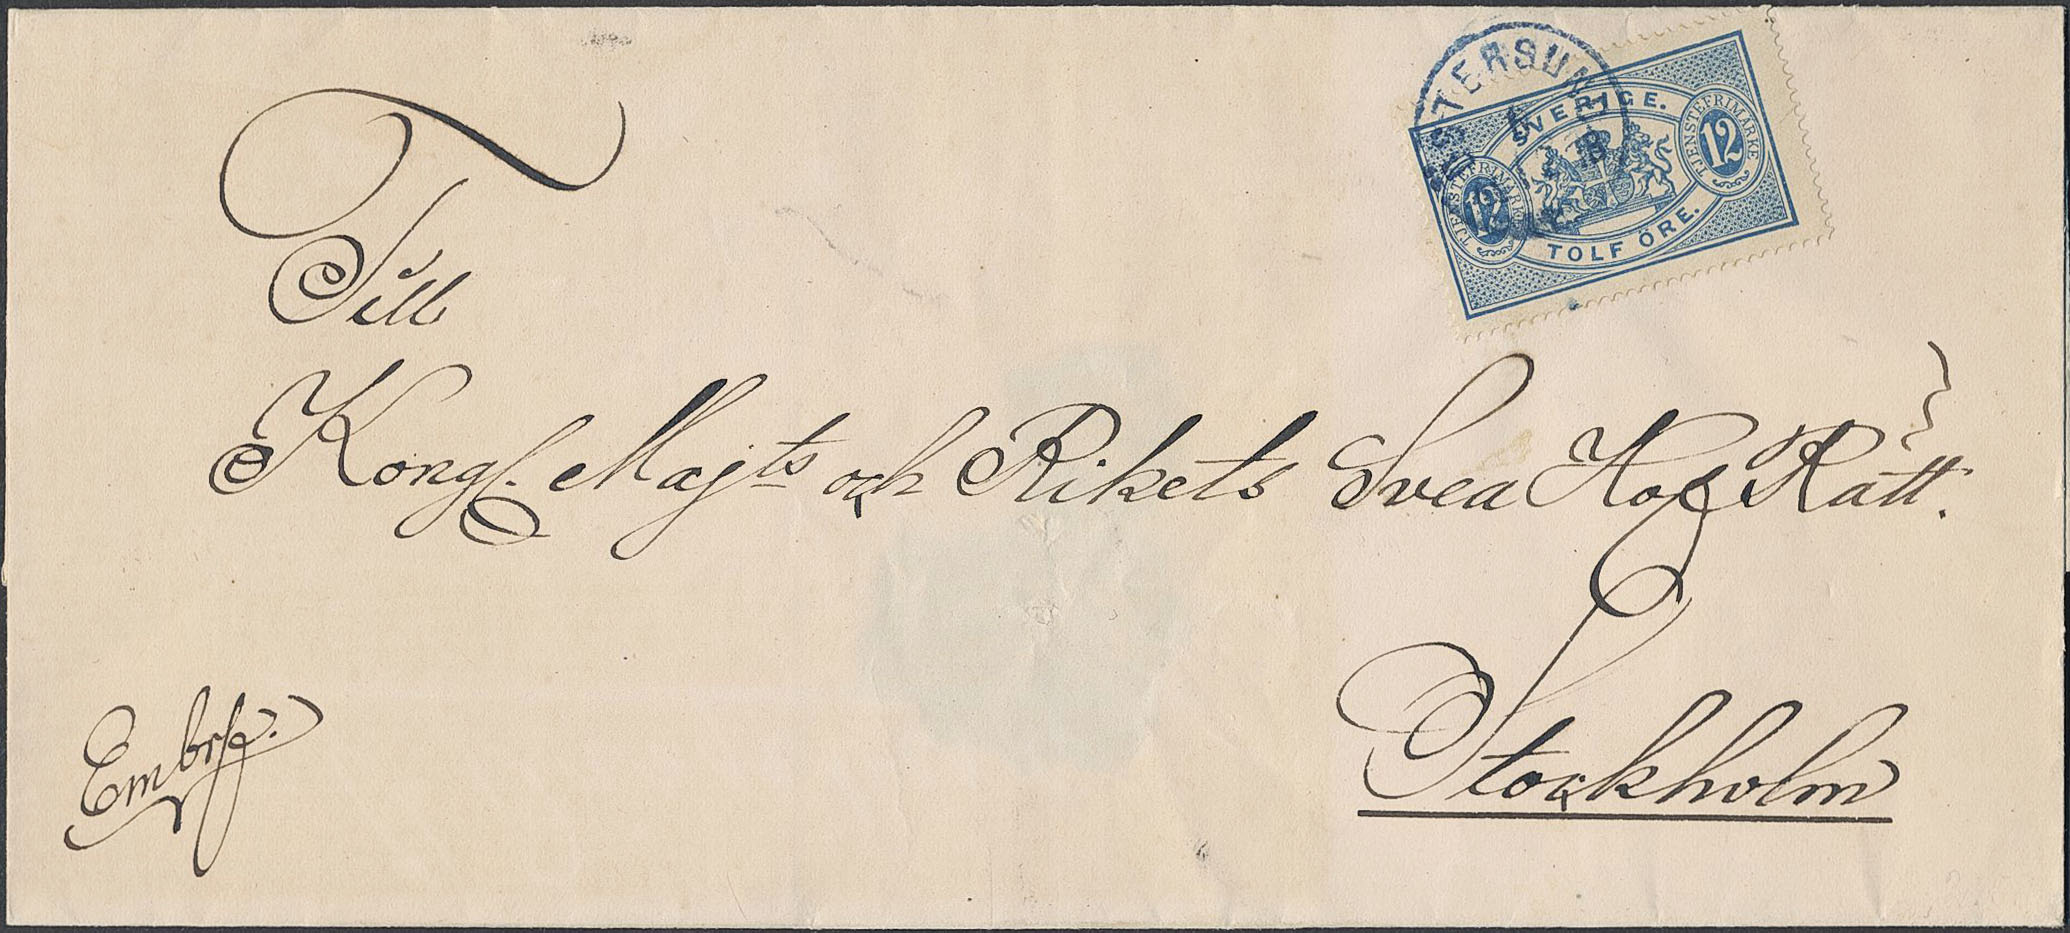 ÖSTERSUND
SVERIGE.
TJENSTEFRIMÄRKE
12
TJENSTEFRIMÄRKE
12
TOLF ÖRE.
Till
Kongl. Majts och Rikets Svea HofRätt.
Stockholm
Embrf.